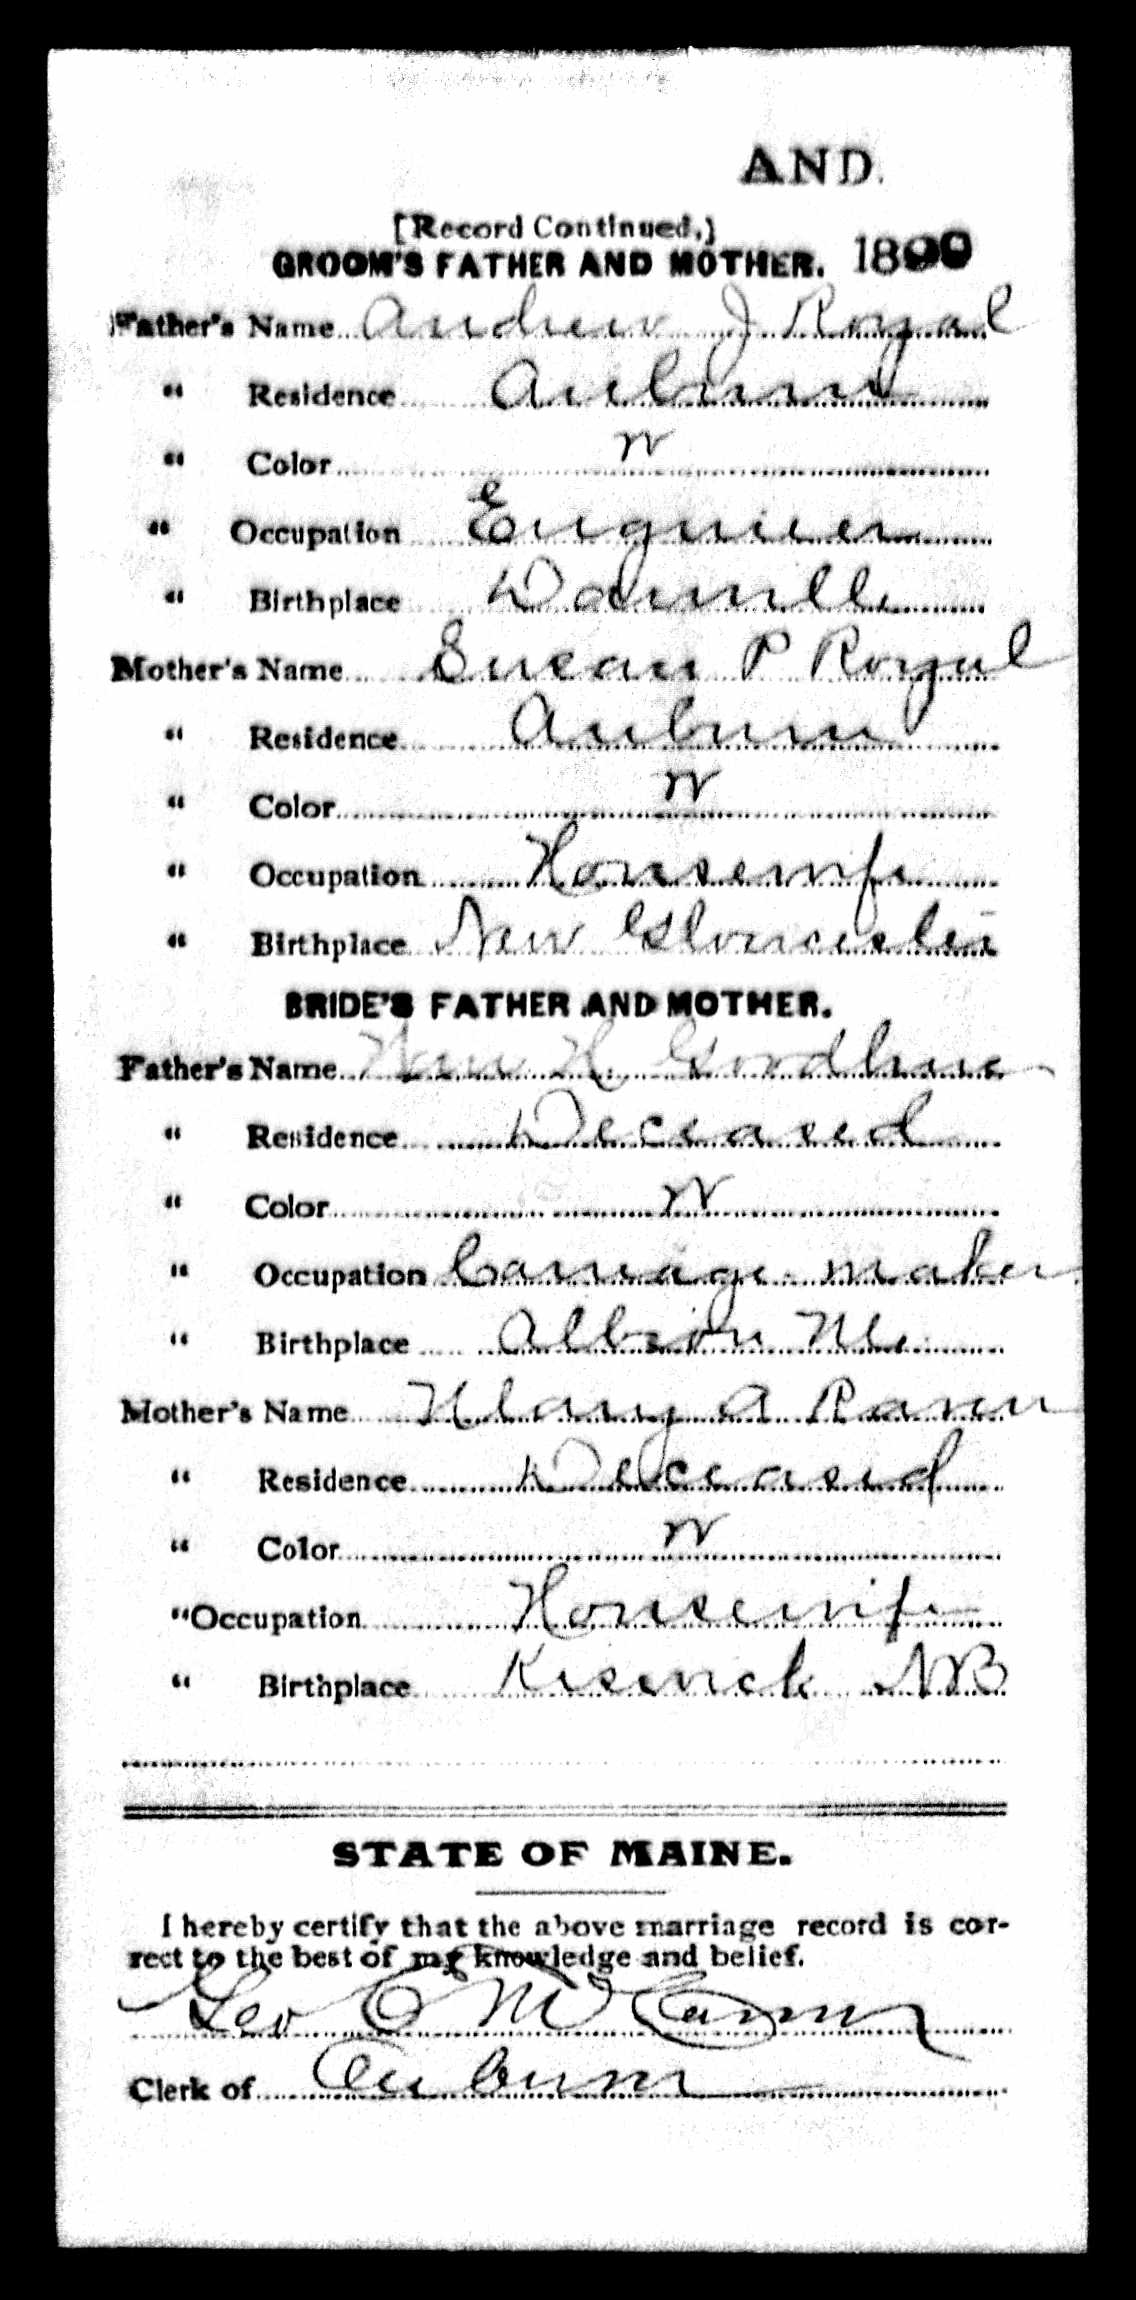 AND.
[Record Continued.]
GROOM'S FATHER AND MOTHER. 1890
Father's Name Andrew J Royal
" Residence Auburn
" Color W
" Occupation Engineer
" Birthplace Danville
Mother's Name Susan P Royal
" Residence Auburn
" Color W
" Occupation Housewife
" Birthplace New Gloucester
BRIDE'S FATHER AND MOTHER.
Father's Name H Goodhue
" Residence Deceased
" Color W
" Occupation Carriage maker
" Birthplace Albion Me
Mother's Name Mary A
" Residence Deceased
" Color W
"Occupation Housewife
" Birthplace Keswick NB
STATE OF MAINE.
I hereby certify that the above marriage record is cor-
rect to the best of my knowledge and belief.
Geo
Clerk of Auburn